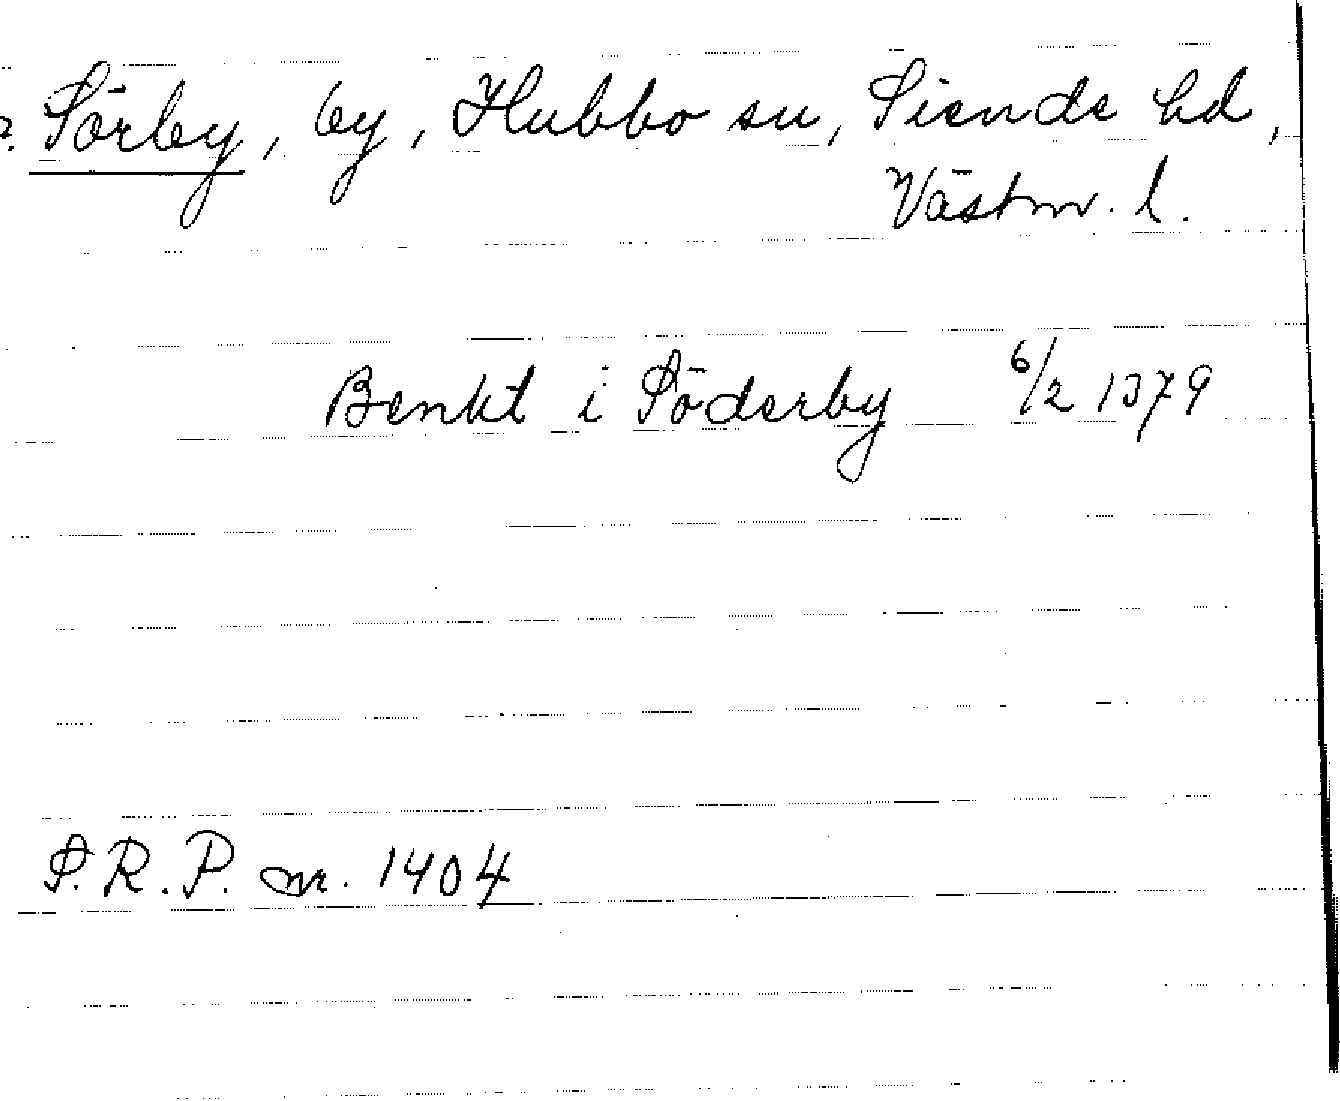 Sörby, by, Hubbo sn, Siende hd,
Västm. l.
Benkt i Söderby 6/2 1379
S.R.P. nr. 1404